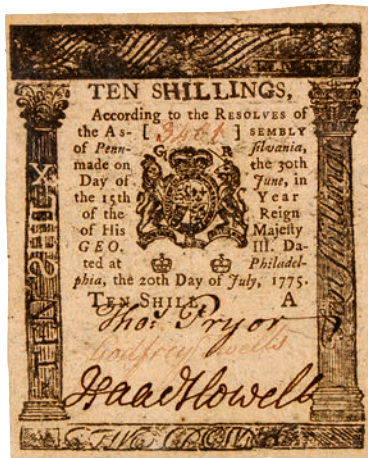 TEN SHILLINGS,
According to the RESOLVES of
the As- [ 3461 ] SEMBLY
of Penn- G R ſilvania,
made on the 30th
Day of June, in
the 15th Year
of the Reign
of His Majeſty
GEO. III. Da-
ted at Philadel-
phia, the 20th Day of July, 1775.
TEN SHILL. A
Thos. Pryor
Godfrey Twells
Isaac Howell
TEN SHILL
Ten Shillings
TWO CROWNS